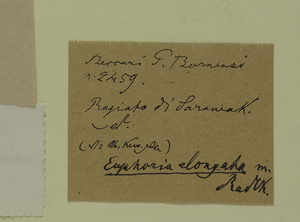 Beccari P. Bornensi
n. 2459.
Ragiato di Sarawak.
Euphoria elongata m.
Radlk.